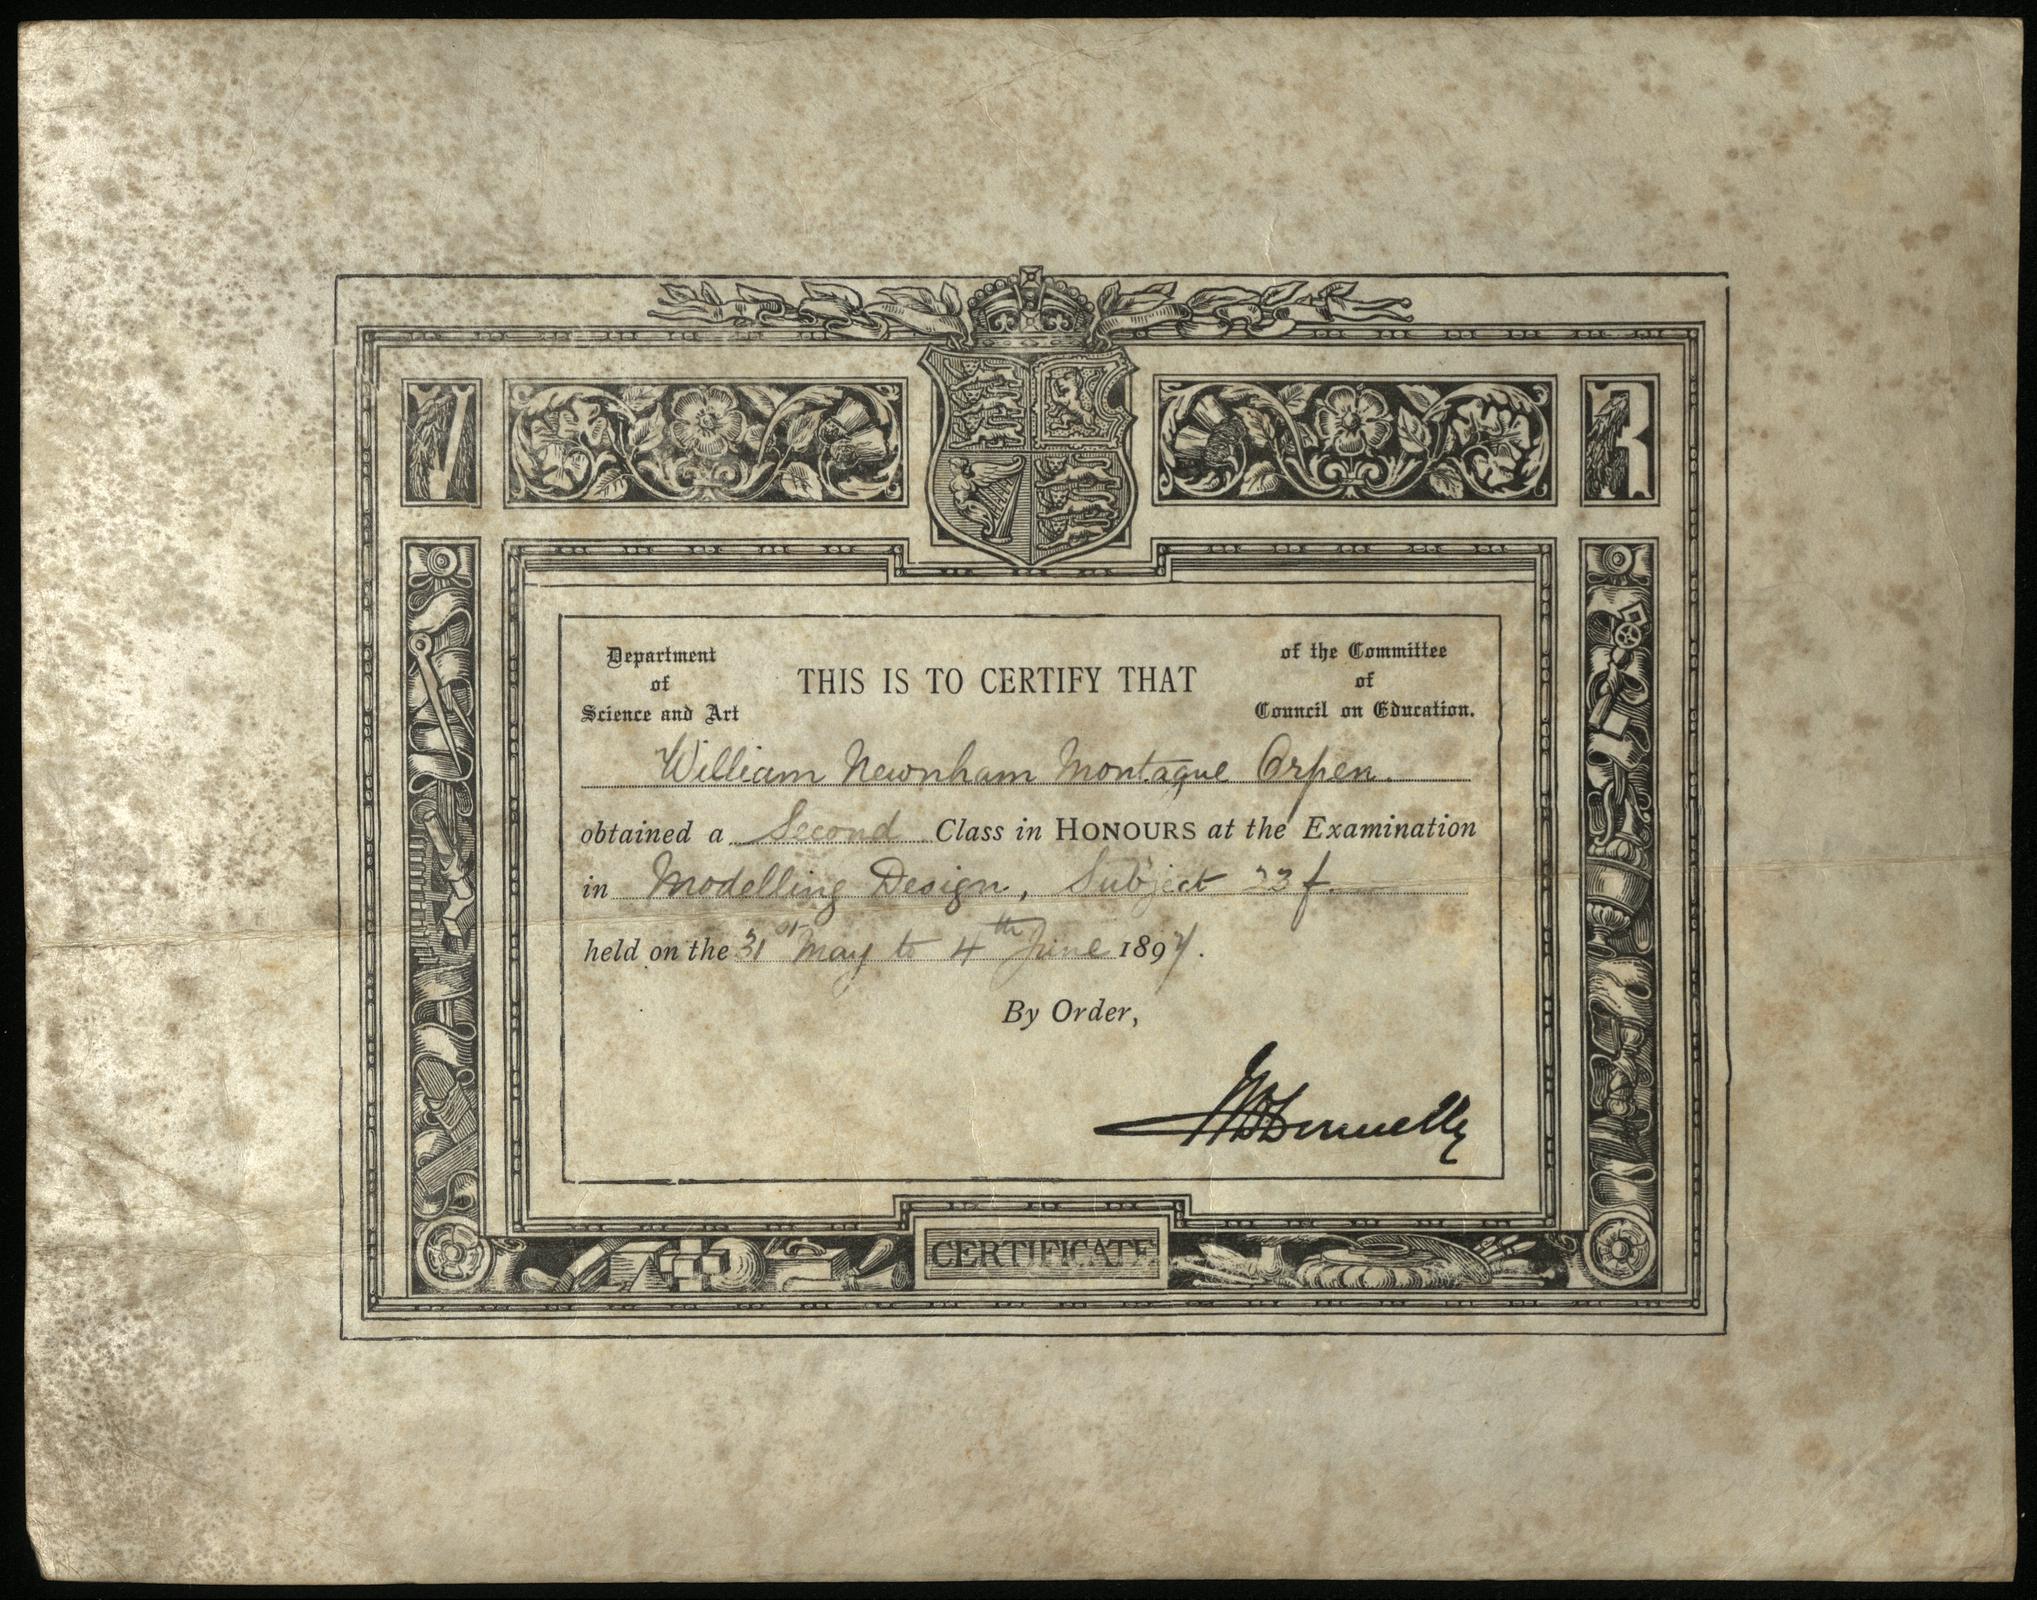 V R
Department
of
Science and Art
THIS IS TO CERTIFY THAT
of the Committee
of
Council on Education.
William Newnham Montague Orpen.
obtained a Second Class in HONOURS at the Examination
in Modelling Design, Subject 23 f.
held on the 31st May to 4th June 1897.
By Order,
JFDDonnelly
CERTIFICATE